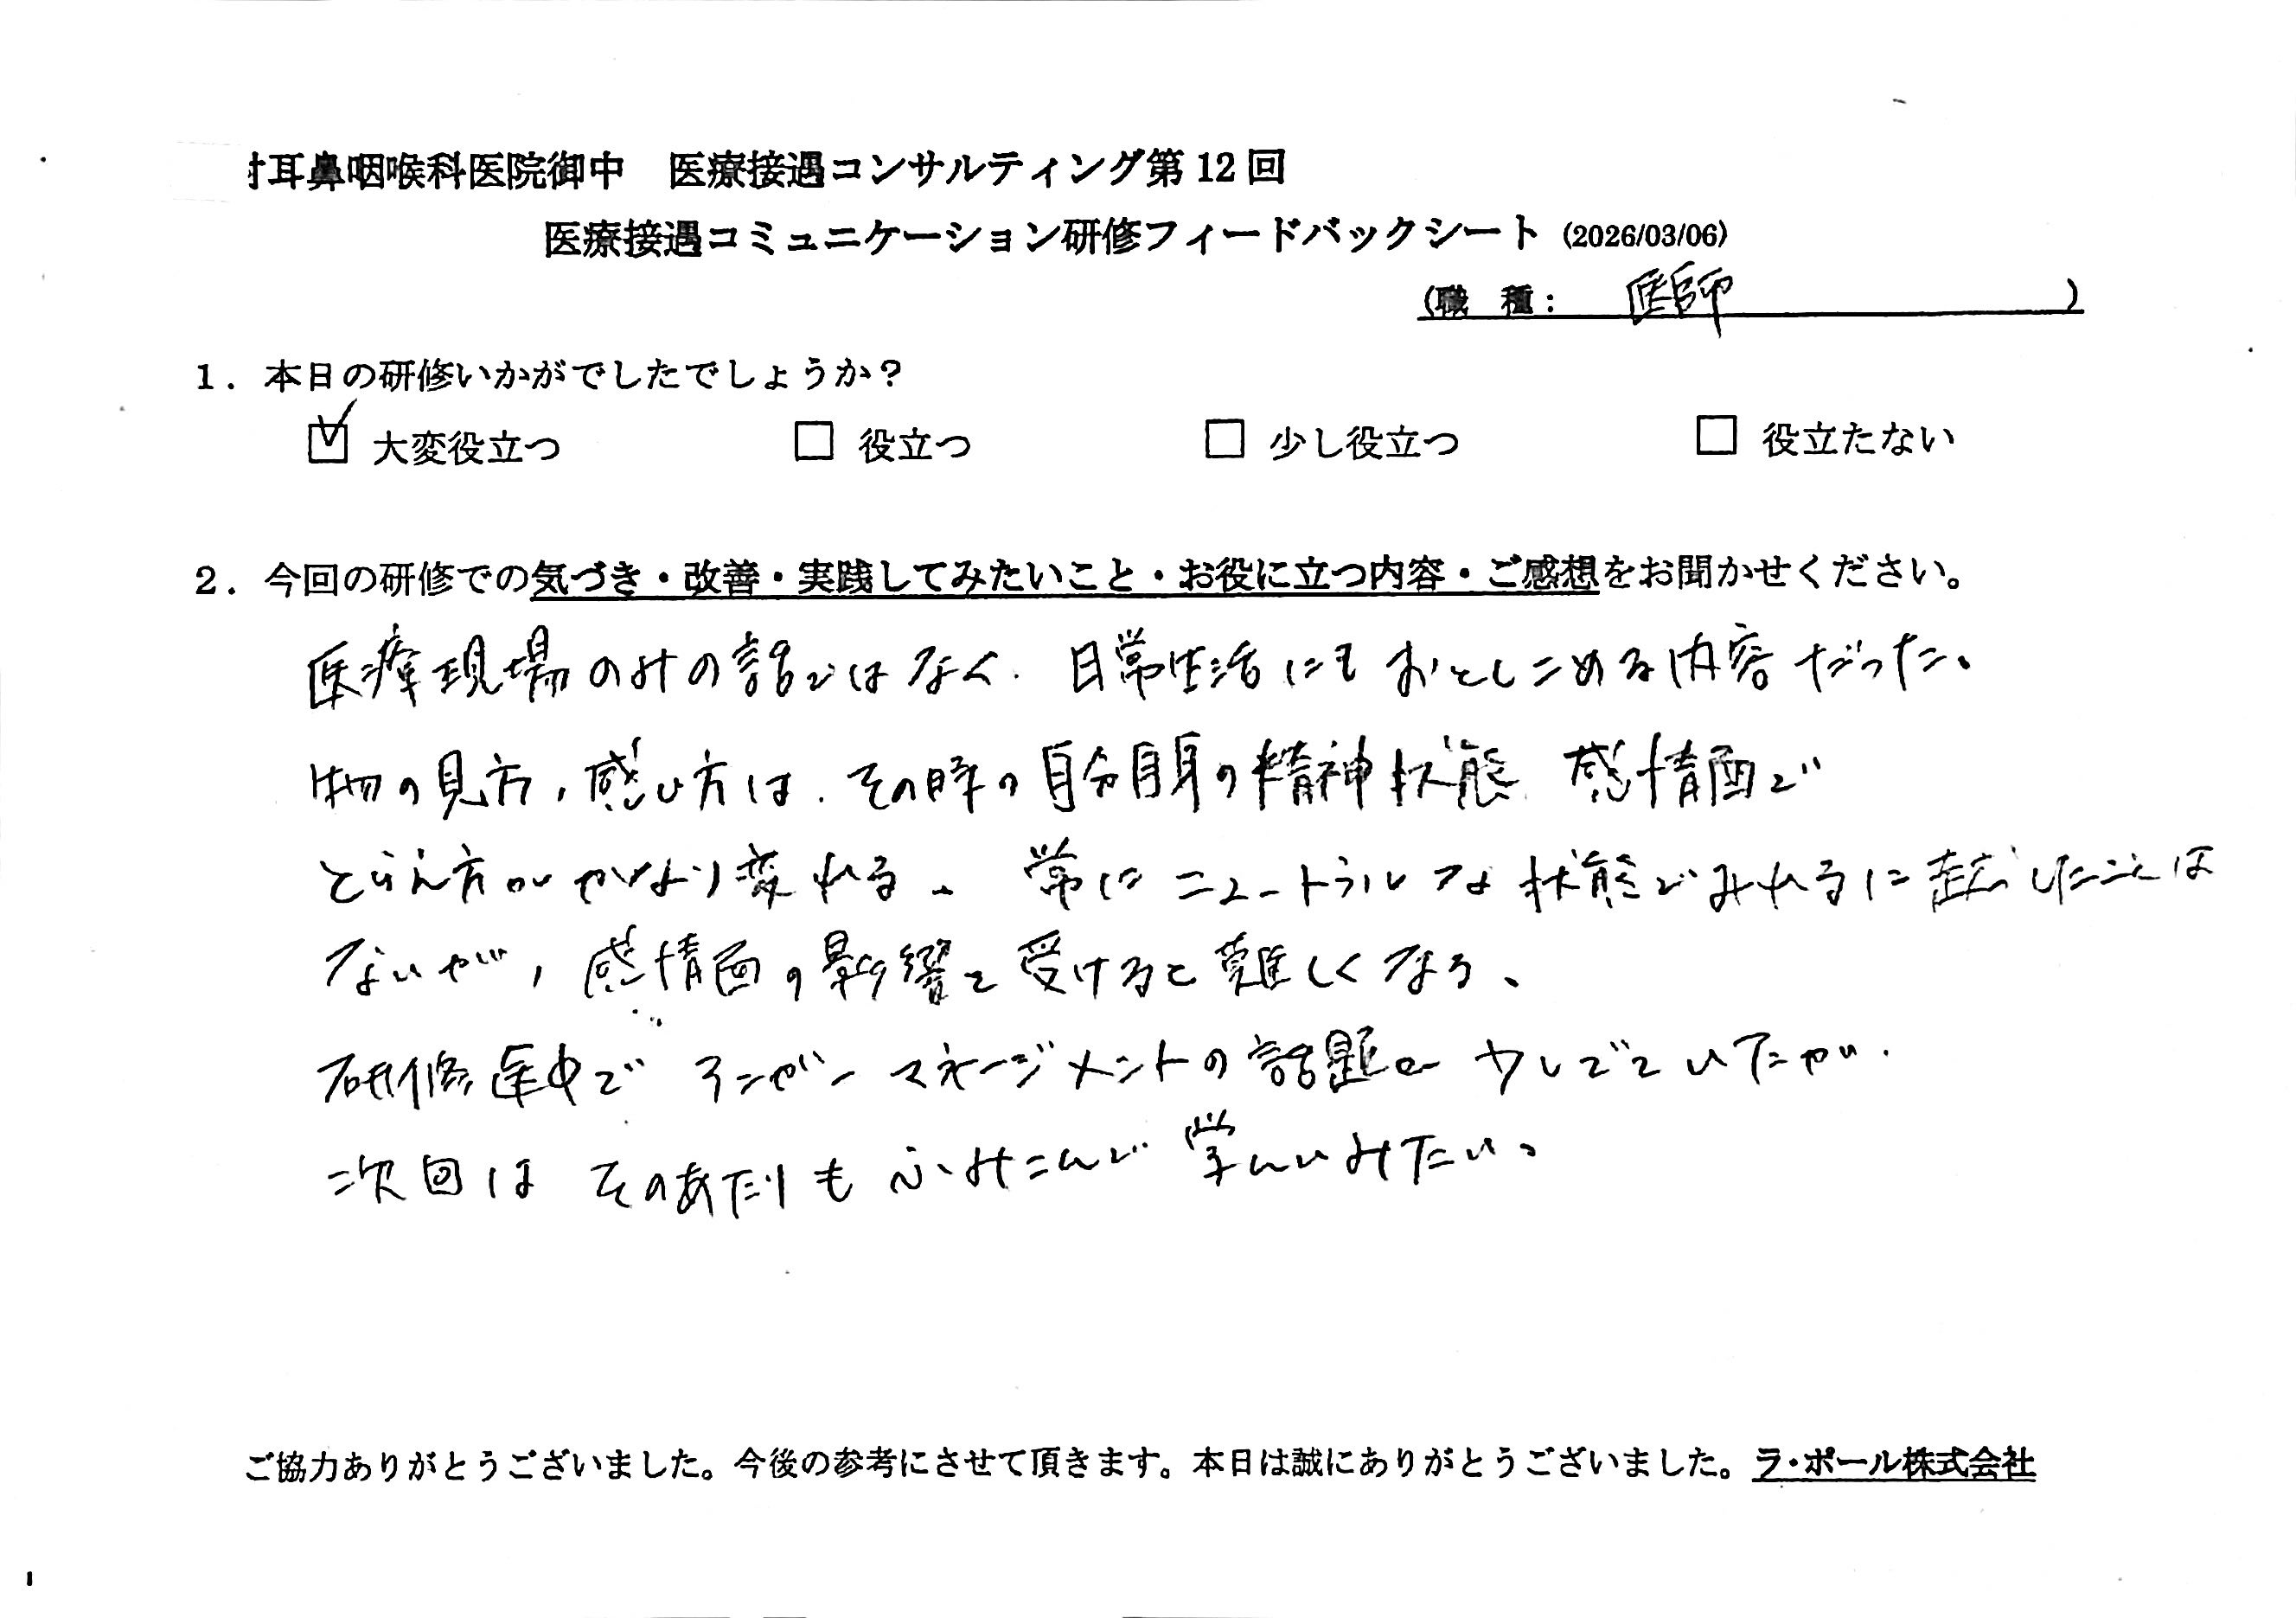 耳鼻咽喉科医院御中　医療接遇コンサルティング第12回
医療接遇コミュニケーション研修フィードバックシート (2026/03/06)
(職　種：　医師　)
1．本日の研修いかがでしたでしょうか？
☑ 大変役立つ　□ 役立つ　□ 少し役立つ　□ 役立たない
2．今回の研修での気づき・改善・実践してみたいこと・お役に立つ内容・ご感想をお聞かせください。
医療現場のみの話ではなく、日常生活にもおとしこめる内容だった。
物の見方，感じ方は、その時の自分自身の精神状態、感情面で
とらえ方がかなり変わる。常にニュートラルな状態でみれるに越したことは
ないが，感情面の影響を受けると難しくなる、
研修途中でアンガーマネージメントの話題が少しでていたが、
次回はそのあたりもふみこんで学んでみたい。
ご協力ありがとうございました。今後の参考にさせて頂きます。本日は誠にありがとうございました。ラ・ポール株式会社